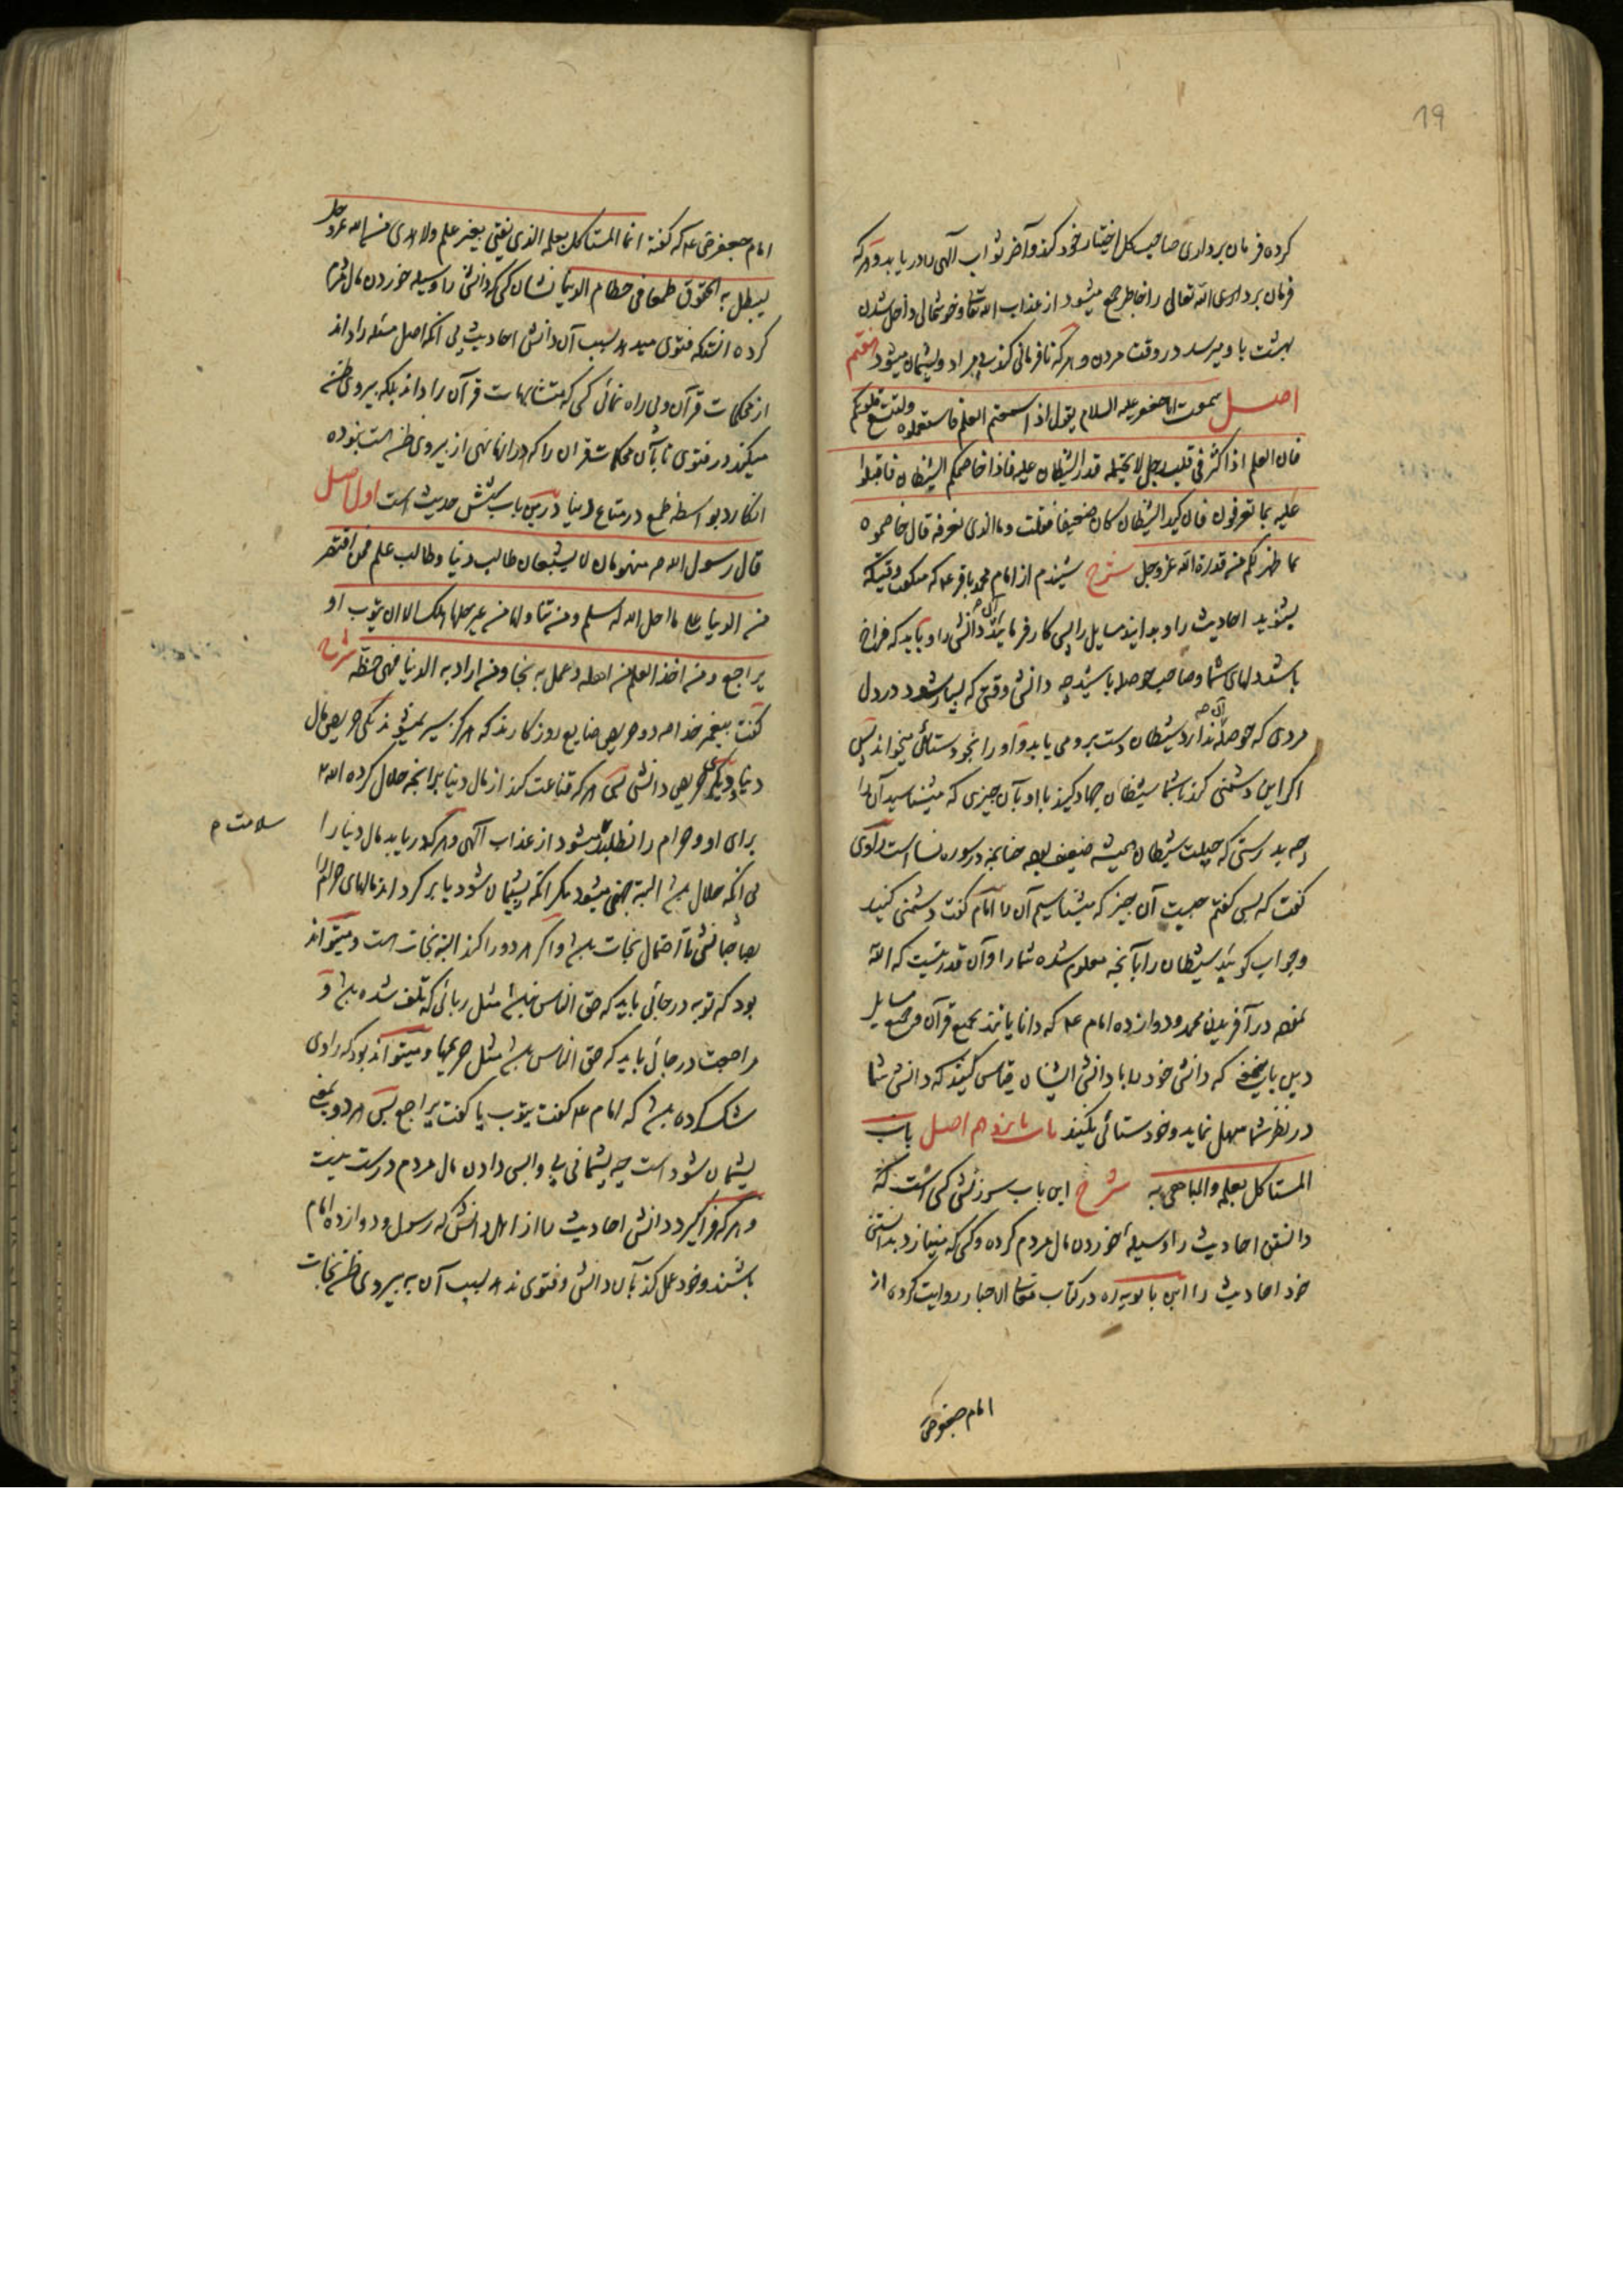 19
کرده فرمان برداری صاحب کل اختیار خود کند و آخر ثواب الهی را دریابد و هر که
فرمان برداری الله تعالی را خاطر جمع میشود از عذاب الله تعالی و خوشحالی داخل شدن
بهشت باو میرسد در وقت مردن و هر که نافرمانی کند بی مراد و پشیمان میشود هفتم
اصل سمعت ابا جعفر علیه السلام یقول اذا سمعتم العلم فاستعملوه ولتتسع قلوبکم
فان العلم اذا کثر فی قلب رجل لا یحتمله قدر الشیطان علیه فاذا خاصمکم الشیطان فاقبلوا
علیه بما تعرفون فان کید الشیطان کان ضعیفا فقلت وما الذی نعرفه قال خاصموه
بما ظهر لکم من قدرة الله عزوجل شرح شنیدم از امام محمد باقر ع که میگفت وقتیکه
بشنوید احادیث را و بدانید مسایل را پس کار فرمایید آن دانش را و باید که فراخ
باشد دلهای شما و صاحب حوصله باشید چه دانش وقتی که بسیار شود در دل
مردی که حوصله آن ندارد شیطان دست برو می یابد و او را بخودستائی میخواند پس
اگر این دشمنی کند با شما شیطان جهاد کنید با او بآن چیزی که میشناسید آن را
چه بدرستی که حیلت شیطان همیشه ضعیف بوده چنانچه در سوره نسا است راوی
گفت که پس گفتم چیست آن چیز که میشناسیم آن را امام گفت دشمنی کنید
و جواب گوئید شیطان را بآنچه معلوم شده شما را و آن قدرتیست که الله
نموده در آفریدن محمد و دوازده امام ع که دانایانند بجمیع قرآن و جمیع مسایل
دین باین نحو که دانش خود را با دانش ایشان قیاس کنید که دانش شما
در نظر شما سهل نماید و خودستائی نکنید باب پانزدهم اصل باب
المستاکل بعلمه والمباهی به شرح این باب سرزنش کسی است که
دانستن احادیث را وسیله خوردن مال مردم کرده و کسی که مینازد بدانستن
خود احادیث را ابن بابویه ره در کتاب معانی الاخبار روایت کرده از
امام جعفر ص
امام جعفر ص ع که گفته انما المستاکل بعلمه الذی یفتی بغیر علم ولا هدی من الله عزوجل
لیبطل به الحقوق طمعا فی حطام الدنیا نشان کسی که دانش را وسیله خوردن مال مردم
کرده انستکه فتوی میدهد بسبب آن دانش احادیث بی آنکه اصل مسئله را داند
از محکمات قرآن و بی راه نمائی کسی که متشابهات قرآن را داند بلکه پیروی ظن
میکند در فتوی تا بآن محکمات قرآن را که در آنها نهی از پیروی ظن است نبوده
انگارد بواسطه طمع در متاع دنیا درین باب شش حدیث است اول اصل
قال رسول الله ص منهومان لا یشبعان طالب دنیا وطالب علم فمن اقتصر
من الدنیا علی ما احل الله له سلم ومن تناولها من غیر حلها هلک الا ان یتوب او
یراجع ومن اخذ العلم من اهله وعمل به نجا ومن اراد به الدنیا فهی حظه شرح
گفت پیغمبر خدا ص دو حریص ضایع روزگارند که هرگز سیر نمیشوند یکی حریص مال
دنیا و دیگر حریص دانش پس هر که قناعت کند از مال دنیا برانچه حلال کرده الله
برای او و حرام را نطلبد میشود از عذاب الهی و هر که دریابد مال دنیا را
سلامت م
بی آنکه حلال باشد البته جهنمی میشود مگر آنکه پشیمان شود یا برگرداند مالهای حرام را
بصاحبانش تا احتمال نجات باشد و اگر هر دو را کند البته نجات است و میتواند
بود که توبه در جائی باید که حق الناس نباشد مثل ربائی که تلف شده باشد و
مراجعت در جائی باید که حق الناس باشد مثل جریمها و میتواند بود که راوی
شک کرده باشد که امام ع گفت یتوب یا گفت یراجع پس هر دو بمعنی
پشیمان شود است چه پشیمانی بی واپس دادن مال مردم درست نیست
و هر که فراگیرد دانش احادیث را از اهل دانش که رسول و دوازده امام
باشند و خود عمل کند بآن دانش و فتوی ندهد بسبب آن به پیروی ظن نجات